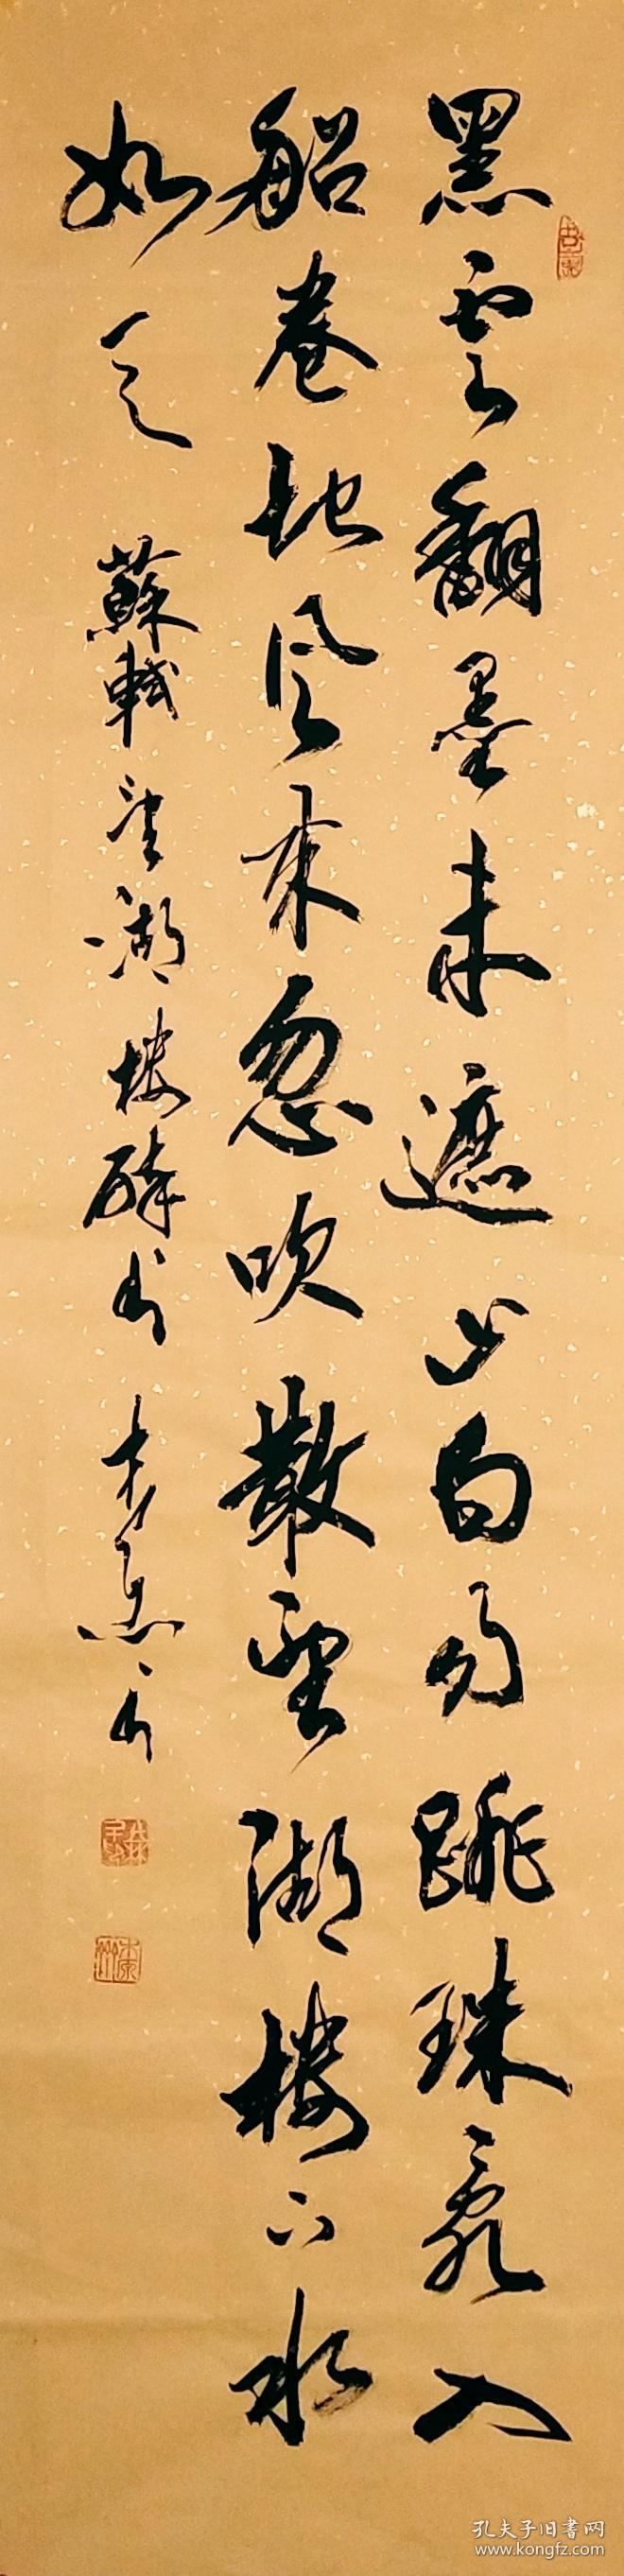 黑雲翻墨未遮山白雨跳珠亂入
船卷地風來忽吹散望湖樓下水
如天 蘇軾望湖樓醉書
孔夫子旧書网
www.kongfz.com